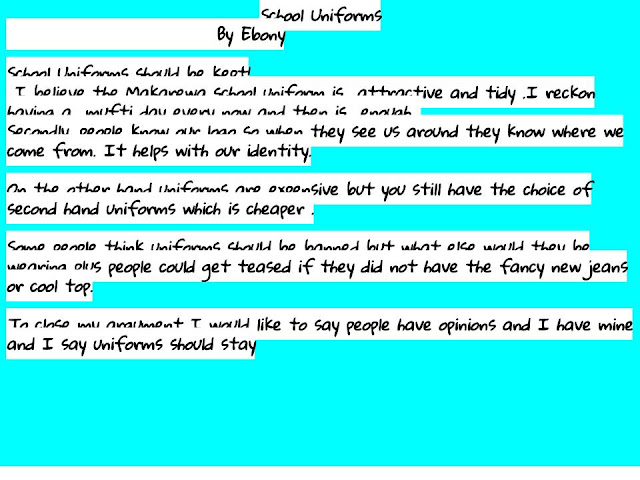 School Uniforms
By Ebony
School Uniforms should be kept!
I believe the Makarewa school uniform is attractive and tidy .I reckon
having a mufti day every now and then is enough.
Secondly people know our logo so when they see us around they know where we
come from. It helps with our identity.
On the other hand uniforms are expensive but you still have the choice of
second hand uniforms which is cheaper .
Some people think uniforms should be banned but what else would they be
wearing plus people could get teased if they did not have the fancy new jeans
or cool top.
To close my argument I would like to say people have opinions and I have mine
and I say uniforms should stay